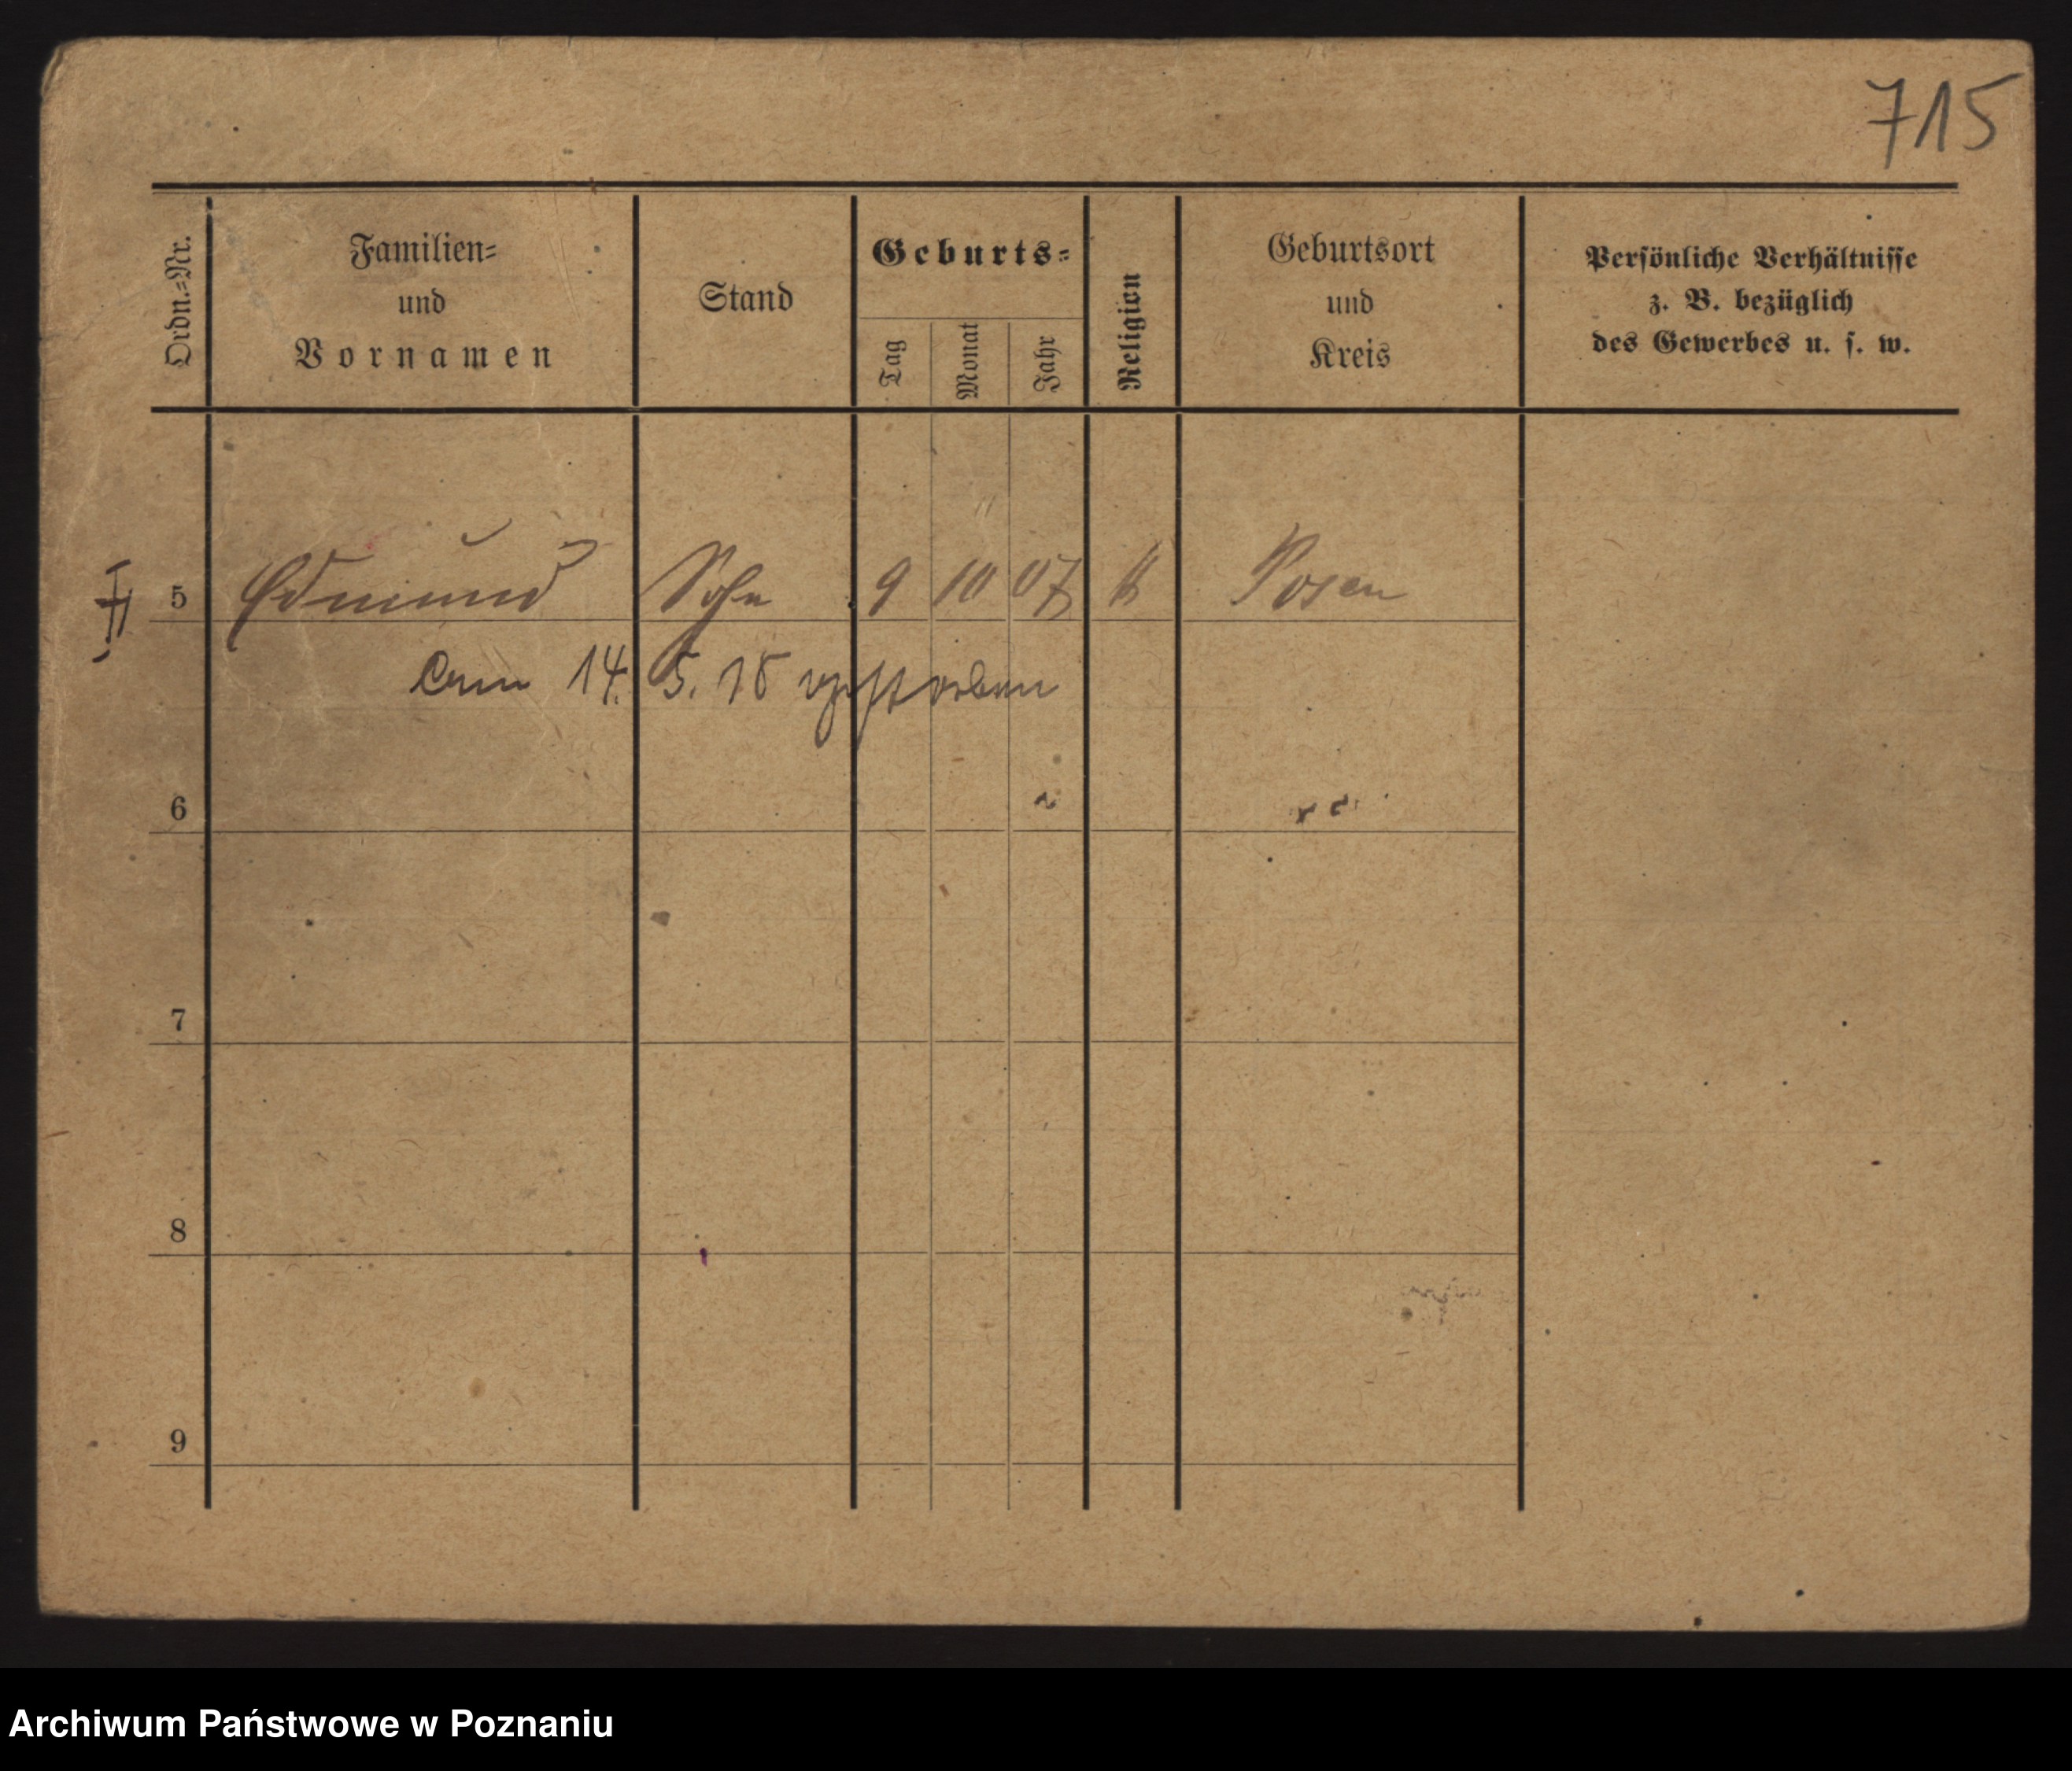 715
Ordn.-Nr.
Familien-
und
Vornamen
Stand
Geburts-
Tag
Monat
Jahr
Religion
Geburtsort
und
Kreis
Persönliche Verhältnisse
z. B. bezüglich
des Gewerbes u. s. w.
5 Edmund Sohn 9 10 07 k Posen
am 14. 5. 18 verstorben
6
7
8
9
Archiwum Państwowe w Poznaniu